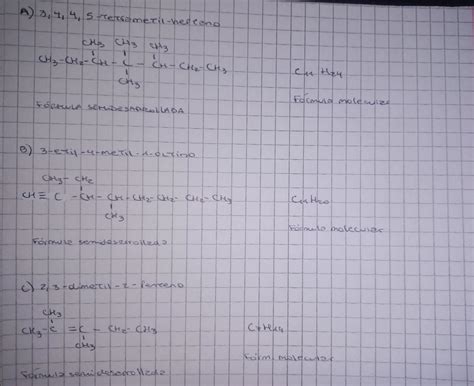 A) 3,4,4,5-tetrametil-heptano
CH3 CH3 CH3
CH3-CH2-CH - C - CH-CH2-CH3
C11H24
CH3
Fórmula semidesarrollada
Fórmula molecular
B) 3-etil-4-metil-1-octino
CH3-CH2
CH≡C-CH-CH-CH2-CH2-CH2-CH3
C11H20
CH3
Fórmula molecular
Fórmula semidesarrollada
C) 2,3-dimetil-2-penteno
CH3
CH3-C=C-CH2-CH3
C7H14
CH3
Fórm molecular
Fórmula semidesarrollada